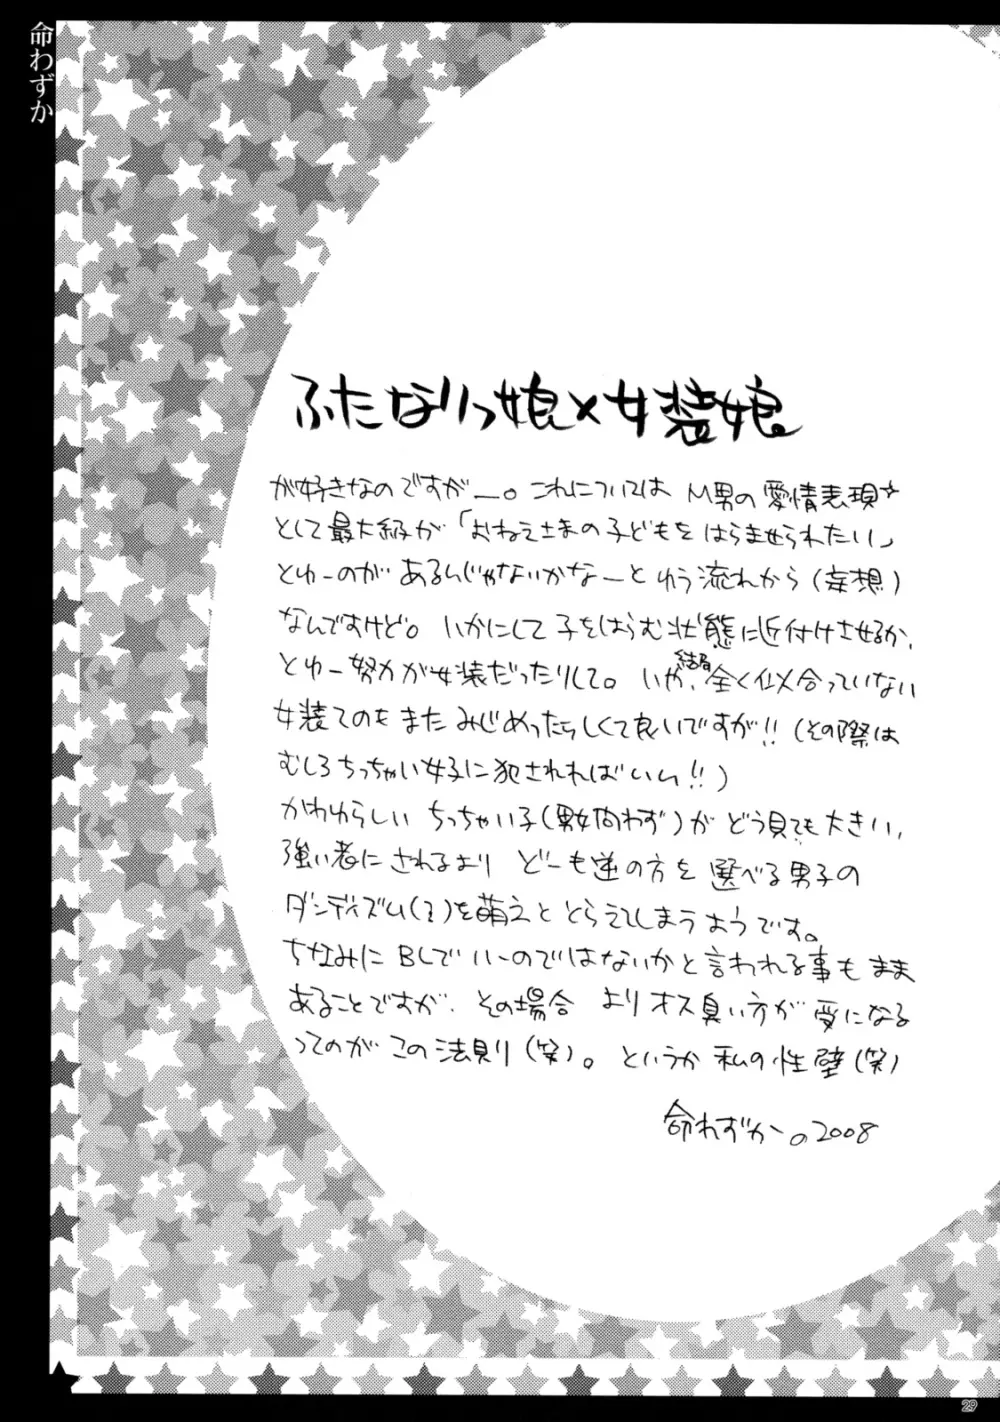 命わずか
ふたなりっ娘×女装娘
が好きなのですがー。これについては M男の愛情表現☆
として最大級が「おねえさまの子どもをはらませられたい」
とゆーのが あるんじゃないかなーとゆう流れから(妄想)
なんですけど。いかにして子をはらむ状態に近付けさせるか、
とゆー努力が女装だったりして。いや、結局全く似合っていない
女装てのもまたみじめったらしくて良いですが!!(その際は
むしろちっちゃい女子に犯されればいい!!)
かわゆらしい ちっちゃい子(男女問わず)が どう見ても大きい、
強い者にされるより どーも逆の方を 選べる男子の
ダンディズム(?)を萌えと とらえてしまうようです。
ちなみに BLでいーのではないかと言われる事もまま
あることですが、その場合 よりオス臭い方が 受になる
ってのが この法則(笑)。というか 私の性壁(笑)
命わずか。2008
29